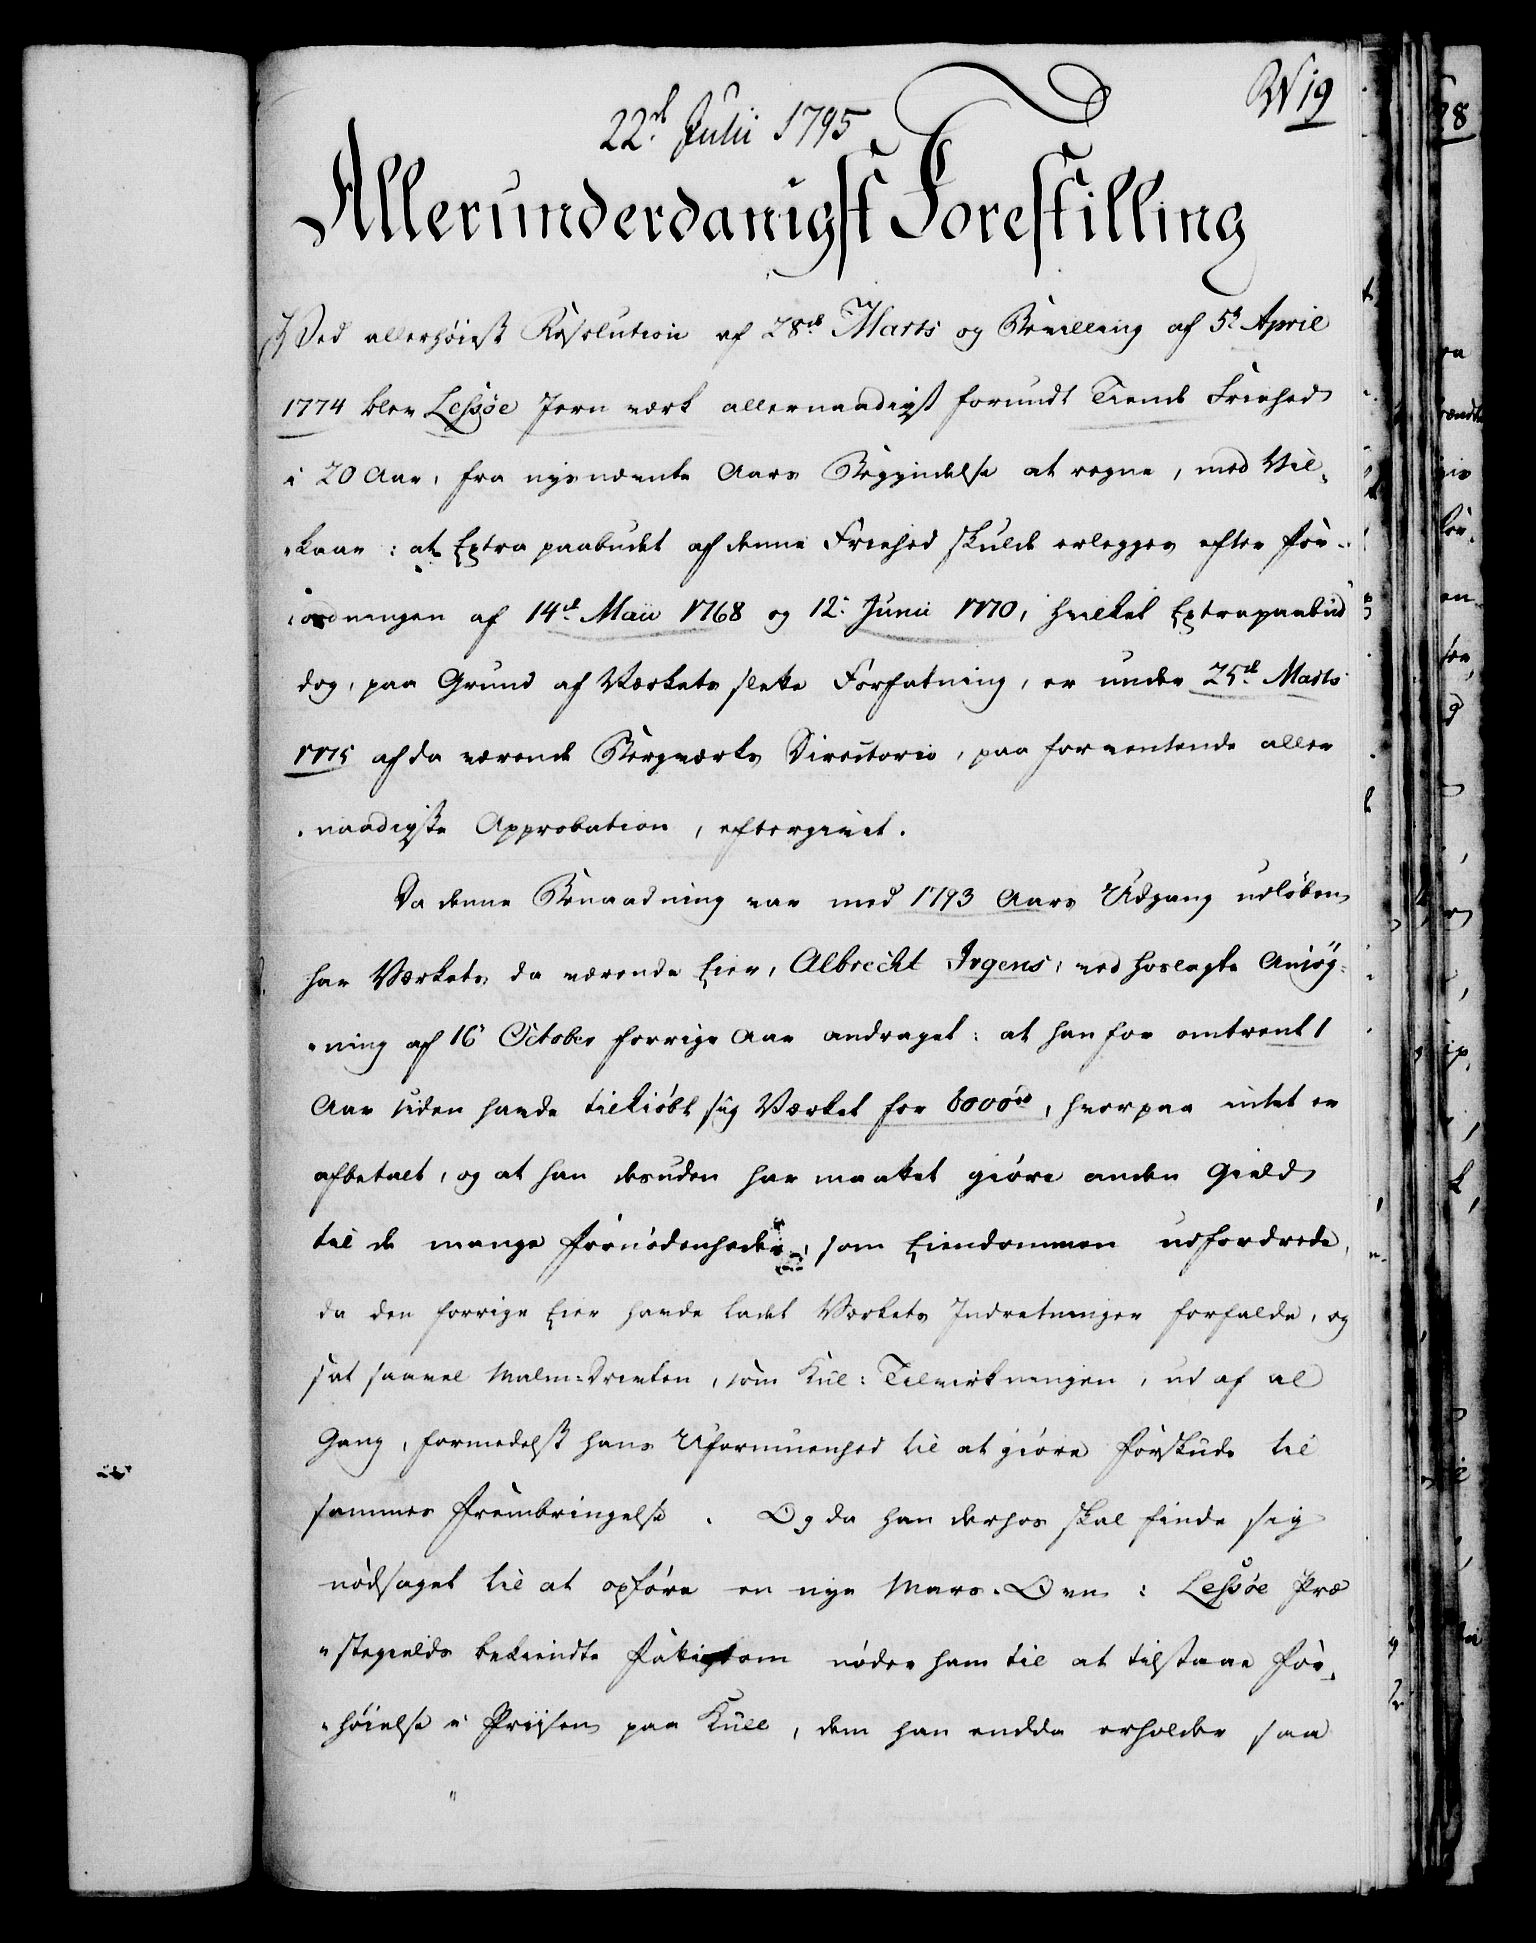 22de Julii 1795
N 19
Allerunderdanigst Forestilling
Ved allerhöiest Resolution af 28de Marts og Bevilling af 5te April
1774 blev Lessöe Jernværk allernaadigst forundt Tiende Friehed
i 20 Aar, fra nysnævnte Aars Begyndelse at regne, med Vil-
-kaar: at Extrapaabudet af denne Friehed skulde erlegges efter For-
-ordningen af 14de Maii 1768 og 12te Junii 1770, hvilket Extrapaabud
dog, paa Grund af Værkets slette Forfatning, er under 25de Marts
1775 af da værende Bergværks Directorio, paa forventende aller
-naadigste Approbation, eftergivet.
Da denne Benaadning var med 1793 Aars Udgang udlöben
har Værkets da værende Eier, Albrecht Irgens, ved hoslagte Ansög-
-ning af 16 October forrige Aar andraget: at han for omtrent 1
Aar siden havde tilkiöbt sig Værket for 6000rd, hvorpaa intet er
afbetalt, og at han desuden har maattet giöre anden Gield
til de mange Fornödenheder, som Eiendommen udfordrede,
da den forrige Eier havde ladet Værkets Indretninger forfalde, og
sat saavel Malm-Driften, som Kul-Tilvirkningen, ud af al
Gang, formedelst hans Uformuenhed til at giöre Forskud til
sammes Frembringelse. Og da han derhos skal finde sig
nödsaget til at opföre en nye Mars-Ovn: Lessöe Præ
-stegields bekiendte Fattigdom nöder ham til at tilstaae For-
-höielse i Priisen paa Kull, dem han endda erholder saa